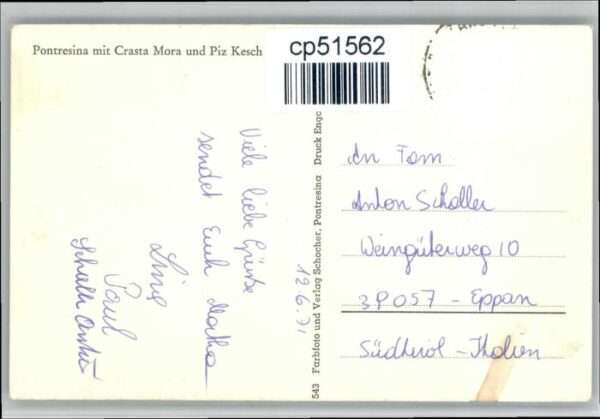 Pontresina mit Crasta Mora und Piz Kesch
cp51562
Viele liebe Grüße
sendet Euch
Paul
12.6.71
543 Farbfoto und Verlag Schocher, Pontresina Druck Enge
An Fam
Anton Schaller
Weingüterweg 10
39057 - Eppan
Südtirol - Italien